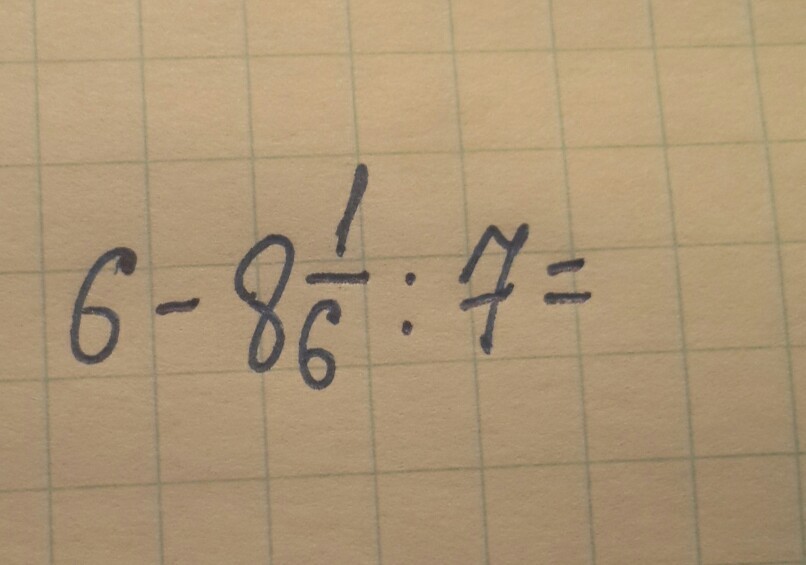 6 - 8 1/6 : 7 =